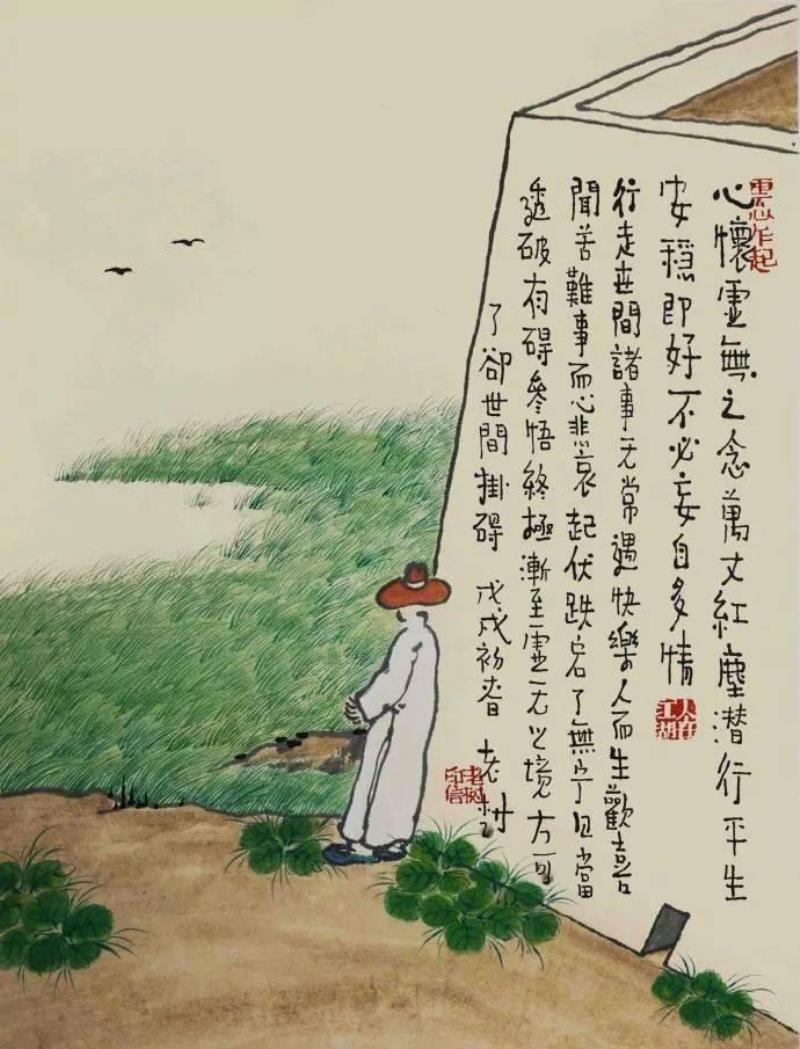 心懷虛無之念萬丈紅塵潜行平生
安稳即好不必妄自多情
行走世間諸事无常遇快樂人而生歡喜
聞苦難事而心悲哀起伏跌宕了無宁日當
透破有碍參悟終極漸至虛无之境方可
了卻世間掛碍 戊戌初春 老树
人在
江湖
老树